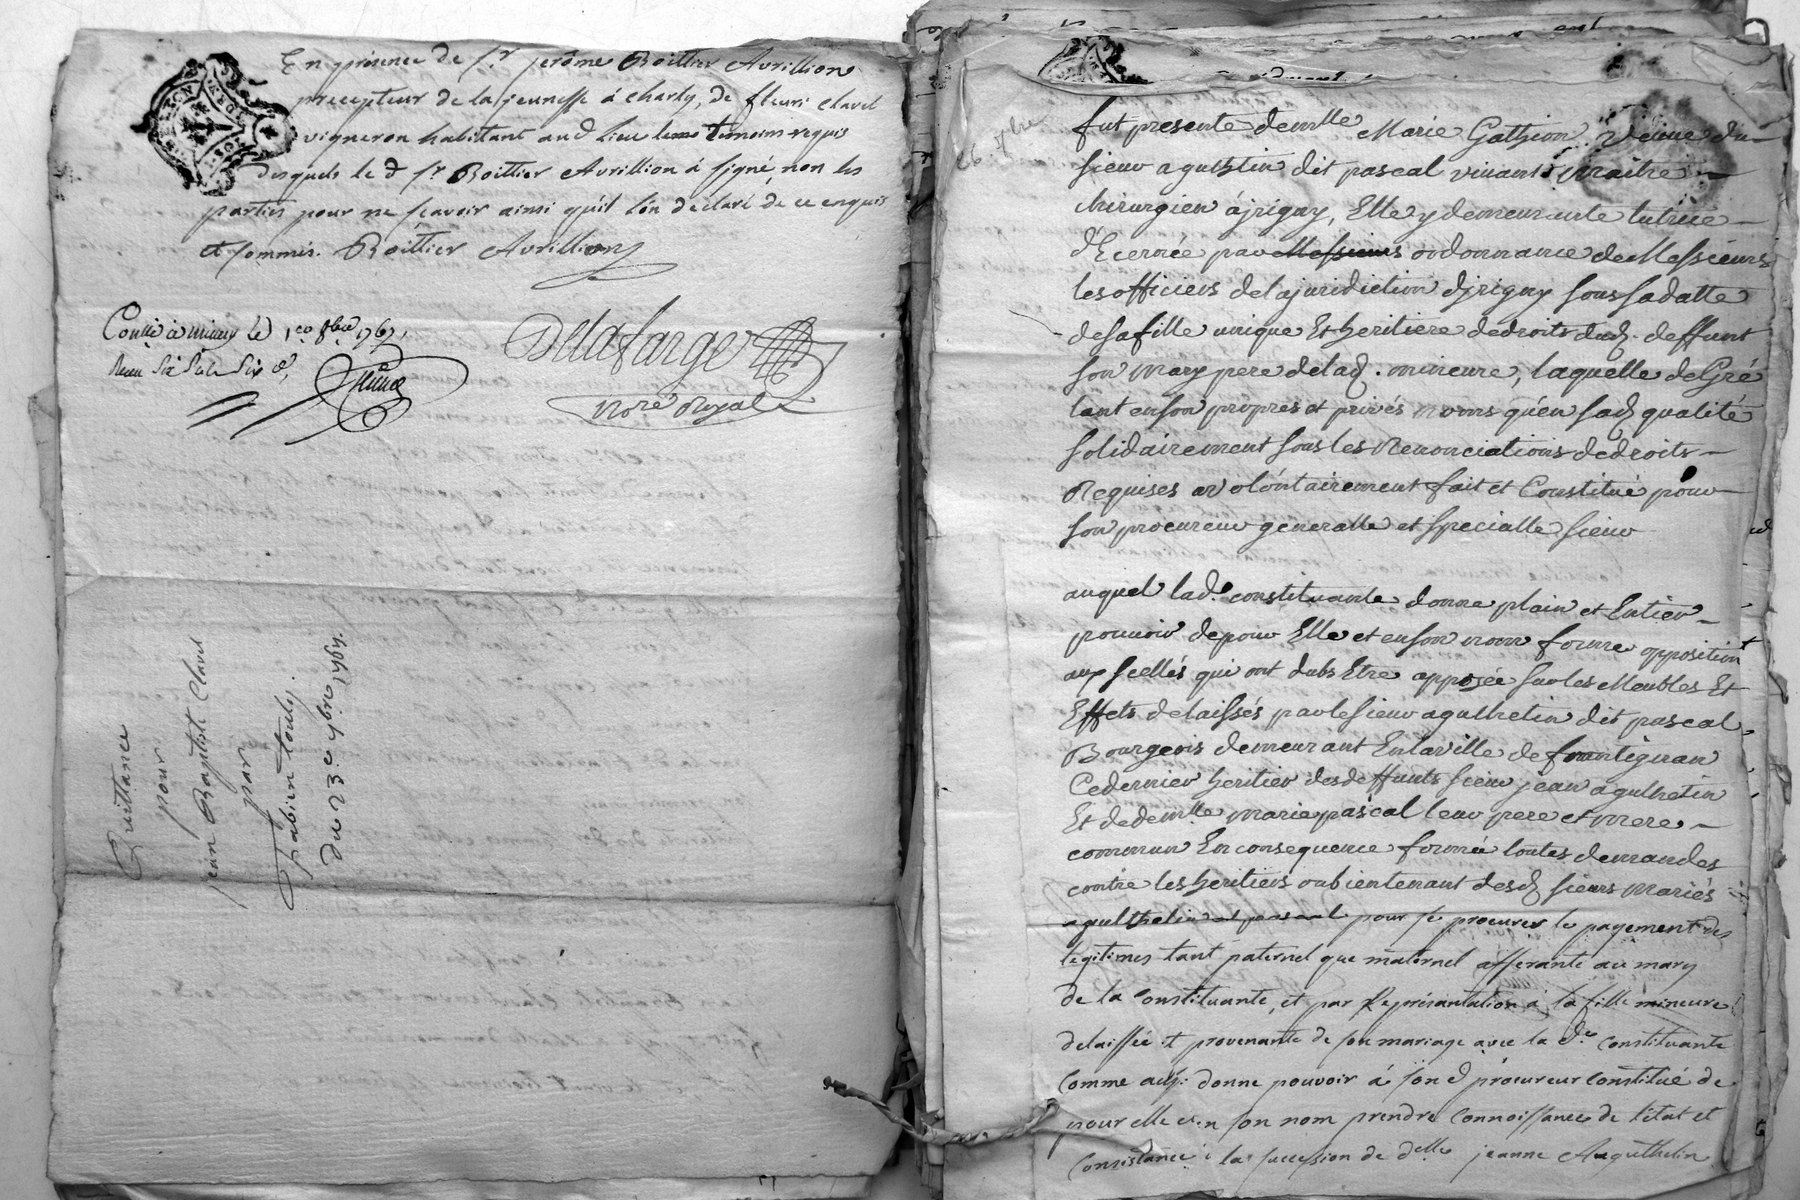 En présence de Sr jerôme Boittier Avrillion
precepteur de la jeunesse á charly, de fleuri clavel
vigneron habitant aud lieu temoins requis
desquels le d Sr Boittier Avrillion á signé non les
parties pour ne scavoir ainsi qu'il l'on declaré de ce enquis
et sommis. Boittier Avrillion
Conllé á le 1er 8bre 1767
Reçu Six Sols Six d,
Delafarge
Nore Royal
Quittance
pour
jean Baptist Clavel
par
fabien touly.
du 23e 7bre 1767.
26 7bre
fut presente demlle Marie Gathion Veuve du
sieur agulhetin dit pascal vivant Maitre
chirurgien á jrigny, Elle y demeurante tutrice
d'Ecernée par Messieurs ordonnance de Messieurs
les officiers de la juridiction d'jrigny sous sa datte
de sa fille unique Et heritiere de droits dud. deffunt
son mary pere de lad. mineure, laquelle de Gré
tant en son propres et privés noms qu'en sad qualité
solidairement sous les Renonciations de droits
Requises a volontairement fait et Constitué pour
son procureur generalle et specialle sieur
auquel lad. constituante donne plain et Entier
pouvoir de pour Elle et en son nom forme opposition
aux scellés qui ont dubs Etre apposée sur les Meubles Et
Effets delaissés par le sieur agulhetin dit pascal
Bourgeois demeurant En la ville de frontignan
Ce dernier heritier des deffunts sieur jean agulhetin
Et de demlle marie pascal leur pere et mere
commun En consequence formée toutes demandes
contre les heritiers ou bientenant desd sieurs mariés
agulthelin et pascal pour se procurer le payement des
légitimes tant paternel que maternel afferante au mary
de la constituante, et par Représantation á la fille mineure
delaissée et provenante de son mariage avec la de constituante
comme aussi donne pouvoir á son d procureur constitué de
pour elle et en son nom prendre connoissance de l'état et
consistance de la succession de delle jeanne Auguthelin